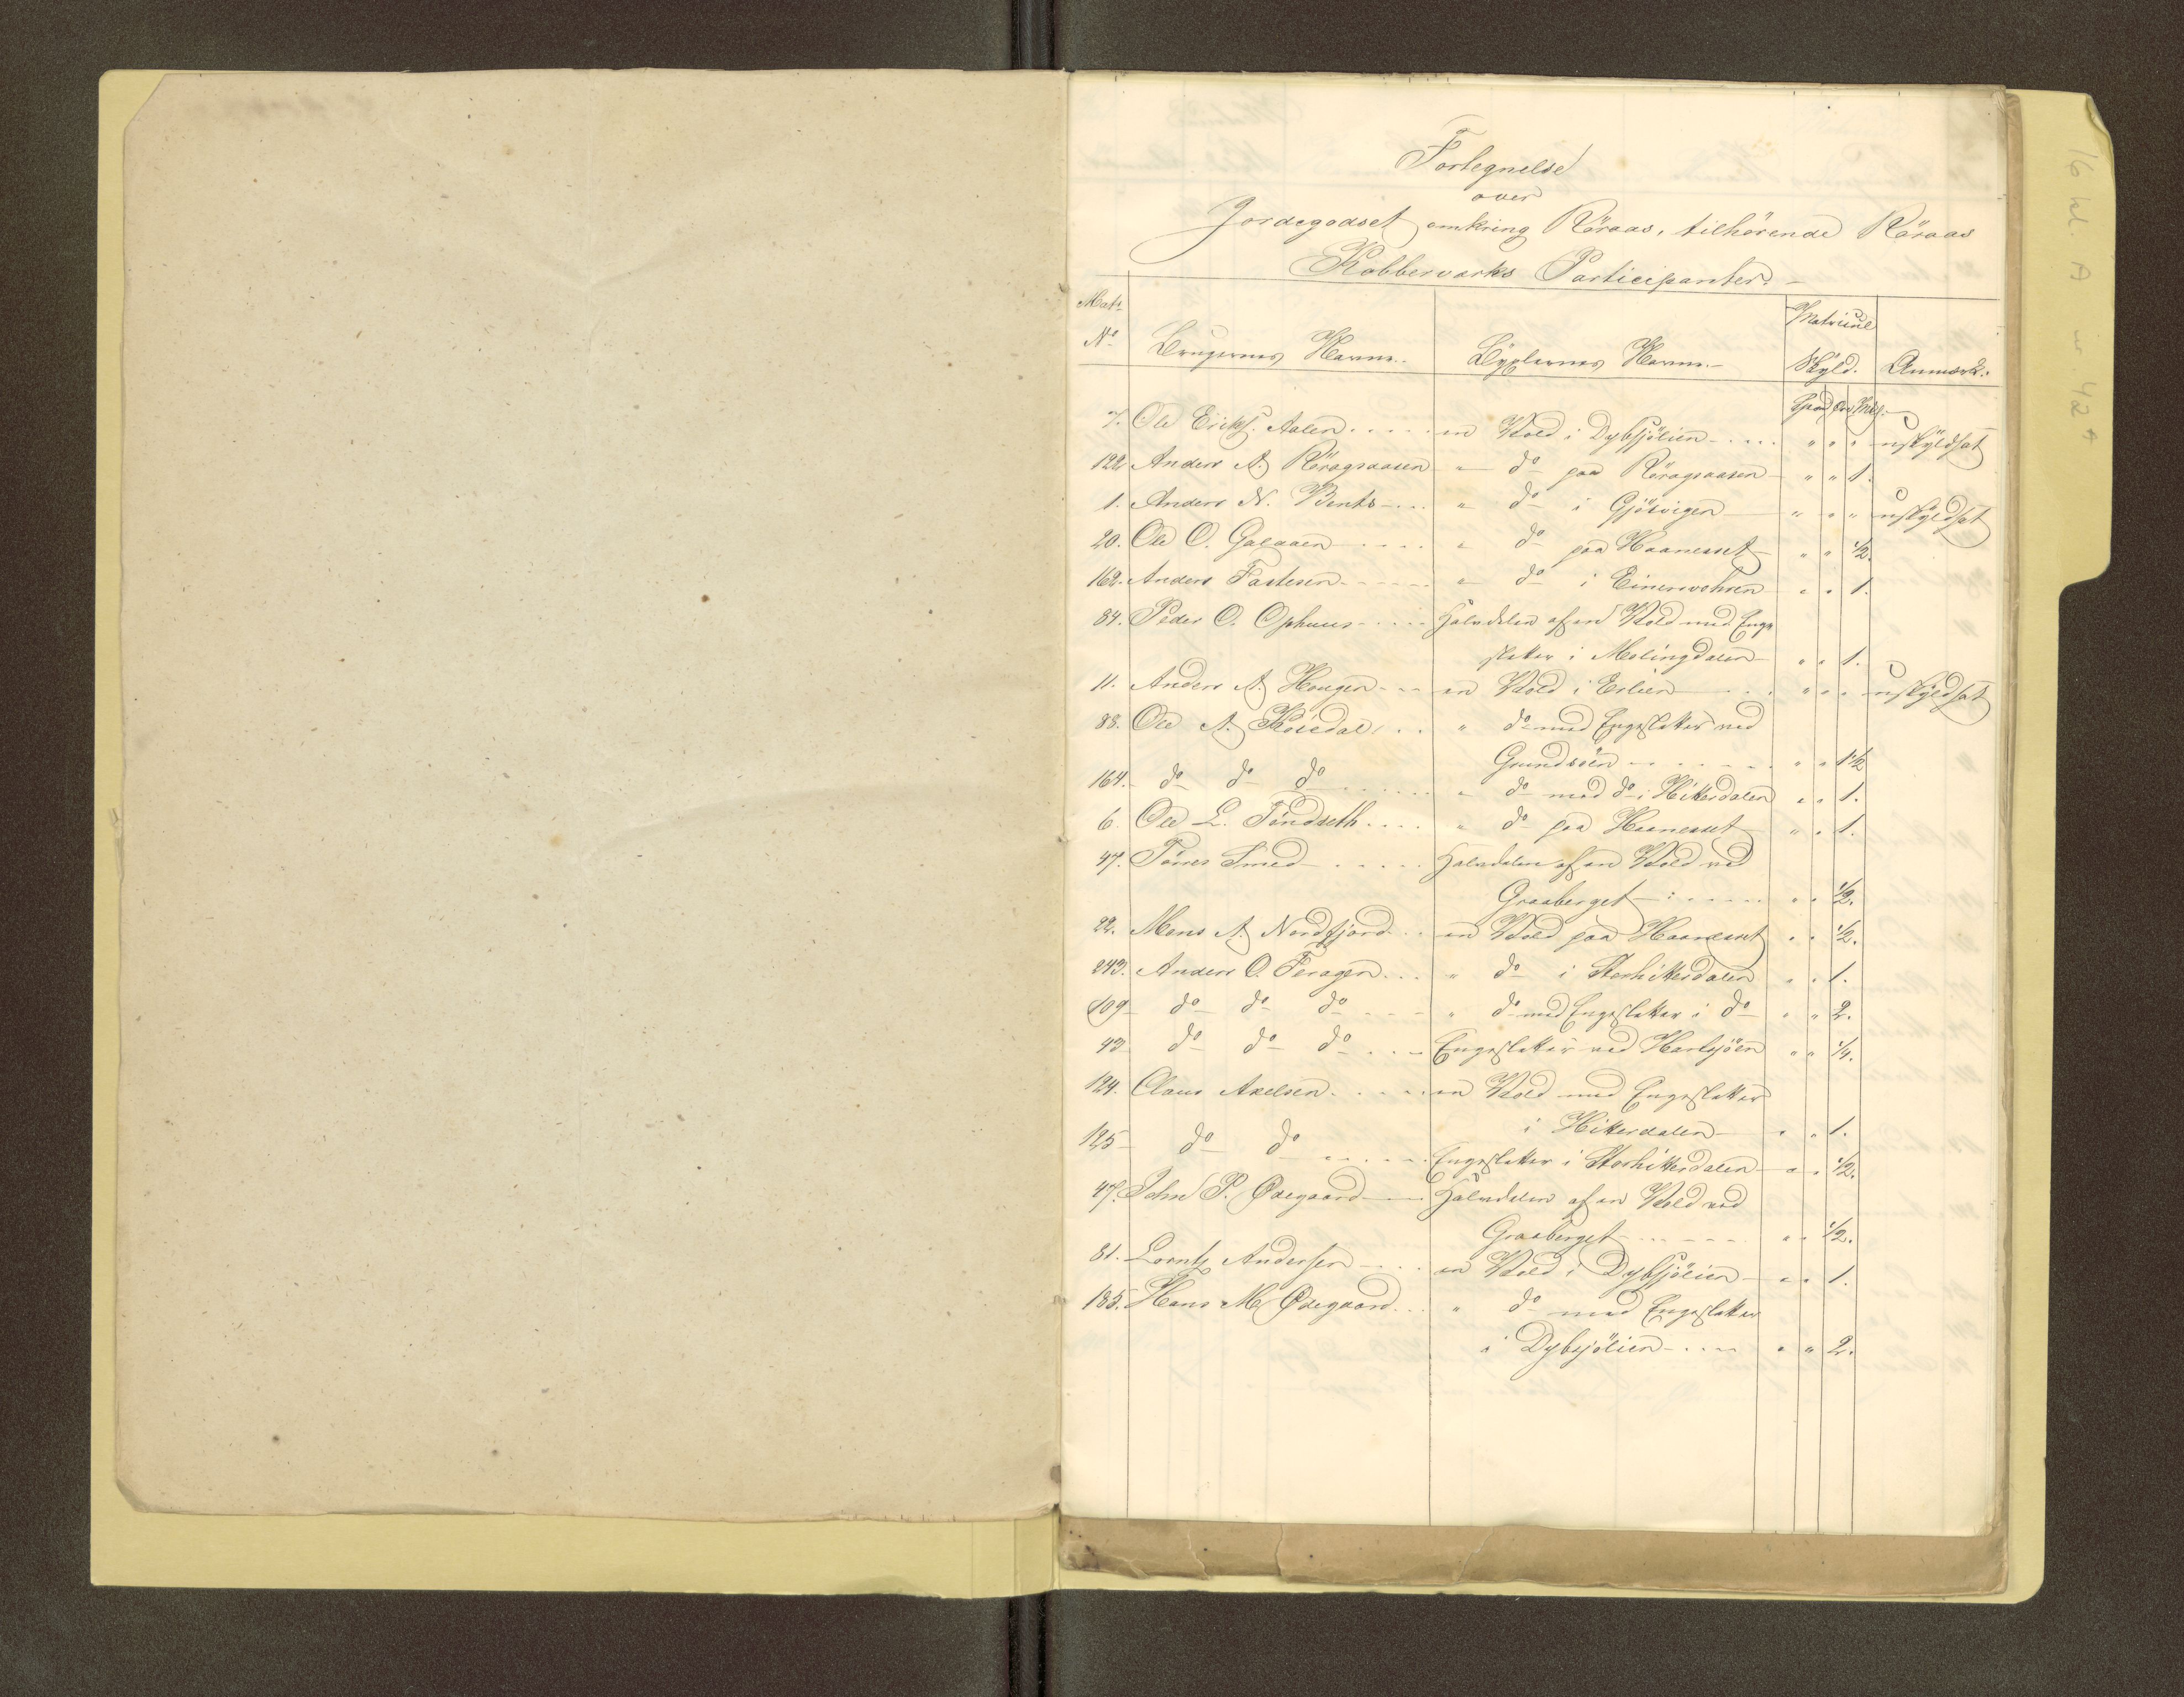 Fortegnelse
over
Jordegodset omkring Röraas, tilhörende Röraas
Kobberværks Participanter.
Mat: No Brugernes Navne. Bÿxlernes Navne. Matricul Skÿld. Anmærk:
Spd Ort Mk.
7. Ole Ericks. Aalen en Vold i Dybsjölien " " " uskÿldsat
122 Anders A. Röragsaasen " do paa Röragsaasen " " 1.
1. Anders N. Bents " do i Gjösvigen " " " uskÿldsat
20. Ole O. Galaaen " do paa Haaneset " " 1/2.
162. Anders Fastesen " do i Einervohlen " " 1.
84. Peder O. Ophuus Halvdelen af en Vold med Enge
sletter i Molingdalen " " 1.
11. Anders A. Hougen en Vold i Erlien " " " uskÿldsat
88. Ole A. Kösedal " do med Engesletter ved
Grundsöen " " 1 1/2
164. do do do " do med do i Hitterdalen " " 1.
6. Ole L. Töndseth " do paa Haaneset " " 1.
47. Törres Smed Halvdelen af en Vold ved
Graaberget " " 1/2.
22. Mons A. Nordfjord en Vold paa Haaneset " " 1/2.
243. Anders O. Feragen " do i Storhitterdalen " " 1.
109 do do do " do med Engesletter i do " " 2.
43 do do do Engesletter ved Harsjöen " " 1/4.
124. Claus Axelsen en Vold med Engesletter
i Hitterdalen " " 1.
125 do do Engesletter i Storhitterdalen " " 1/2.
47. John P. Ödegaard Halvdelen af en Vold ved
Graaberget " " 1/2.
81. Lorntz Andersen en Vold i Dybsjölien " " 1.
185. Hans M. Ödegaard " do med Engesletter
i Dybsjölien " " 2.
16 kl. A nr. 42 A